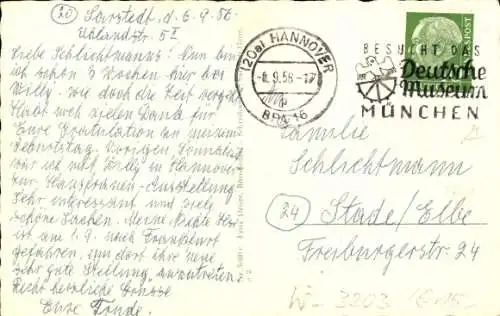 20 Sarstedt, d. 6.9.56.
Uhlandstr. 5 I
Liebe Schlichtmanns! Nun bin
ich schon 3 Wochen hier bei
Willy, wie doch die Zeit vergeht.
Habt noch vielen Dank für
Eure Gratulation zu meinem
Geburtstag. Vorigen Sonnabend
war ich mit Willy in Hannover
zur Hausfrauen-Ausstellung
Sehr interessant und viele
schöne Sachen. Meine Nichte
ist am 1.9. nach Frankfurt
gefahren, um dort ihre neue
sehr gute Stellung anzutreten.
Recht herzliche Grüsse
Eure
(20a) HANNOVER
-6.9.56-17
BPA 16
BESUCHT DAS
Deutsche
Museum
MÜNCHEN
POST
Familie
Schlichtmann
24 Stade/Elbe
Freiburgerstr. 24
W- 3203